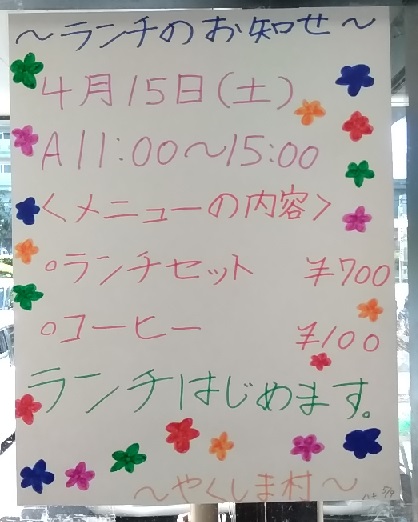 ～ランチのお知せ～
4月15日(土)
A11:00～15:00
<メニューの内容>
○ランチセット ¥700
○コーヒー ¥100
ランチはじめます。
～やくしま村～